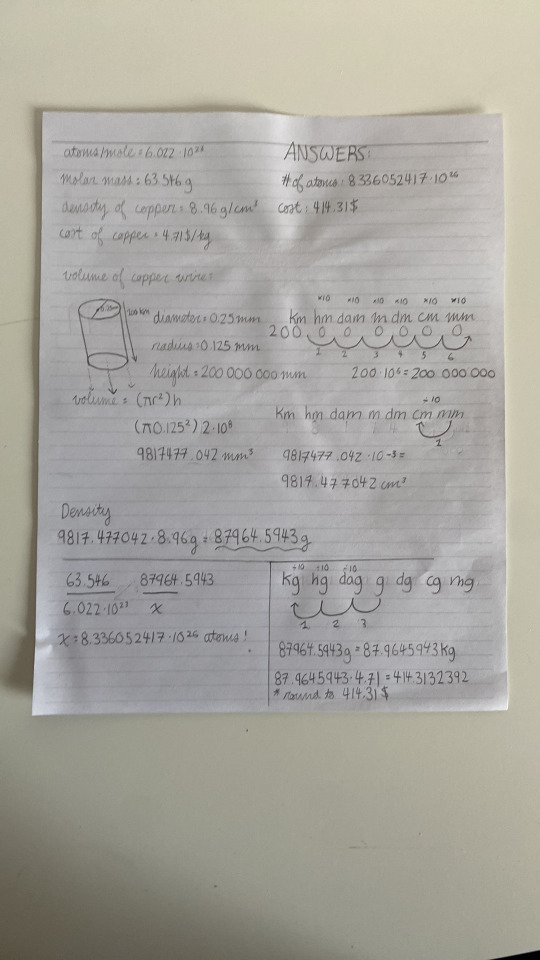 atoms/mole = 6.022 · 10²³
molar mass: 63.546 g
density of copper = 8.96 g/cm³
cost of copper = 4.71 $/kg
ANSWERS:
# of atoms: 8336052417 · 10²⁶
cost: 414.31$
volume of copper wire:
0.25mm
200 km
diameter = 0.25 mm
radius = 0.125 mm
height = 200 000 000 mm
×10 ×10 ×10 ×10 ×10 ×10
Km hm dam m dm cm mm
200 0 0 0 0 0 0
1 2 3 4 5 6
200 · 10⁶ = 200 000 000
volume = (πr²)h
(π0.125²) 2·10⁸
9817477.042 mm³
÷10
Km hm dam m dm cm mm
1
9817477.042 · 10⁻³ =
9817.477042 cm³
Density
9817.477042 · 8.96g = 87964.5943g
63.546 87964.5943
6.022·10²³ x
x = 8.336052417 · 10²⁶ atoms!
÷10 ÷10 ÷10
kg hg dag g dg cg mg
1 2 3
87964.5943g = 87.9645943kg
87.9645943 · 4.71 = 414.3132392
* round to 414.31 $